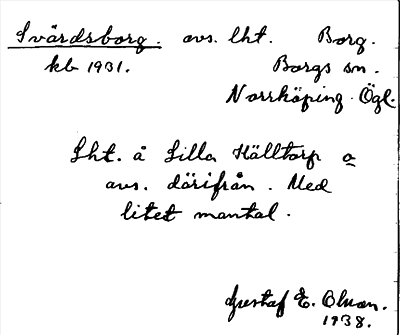 Svärdsborg. avs. lht. Borg.
kb 1931. Borgs sn.
Norrköping. Ögl.
Lht. å Lilla Hälltorp o
avs. därifrån. Med
litet mantal.
Gustaf E. Olsson.
1938.